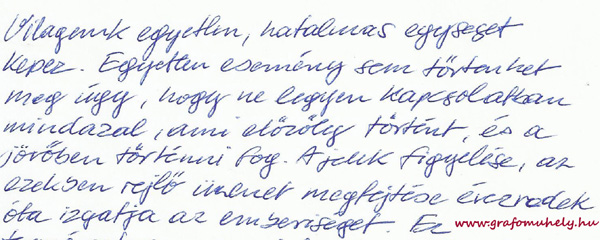 Világunk egyetlen, hatalmas egységet
képez. Egyetlen esemény sem történhet
meg úgy, hogy ne legyen kapcsolatban
mindazzal, ami előzőleg történt, és a
jövőben történni fog. A jelek figyelése, az
ezekben rejlő üzenet megfejtése évezredek
óta izgatja az emberiséget. Ez
www.grafomuhely.hu